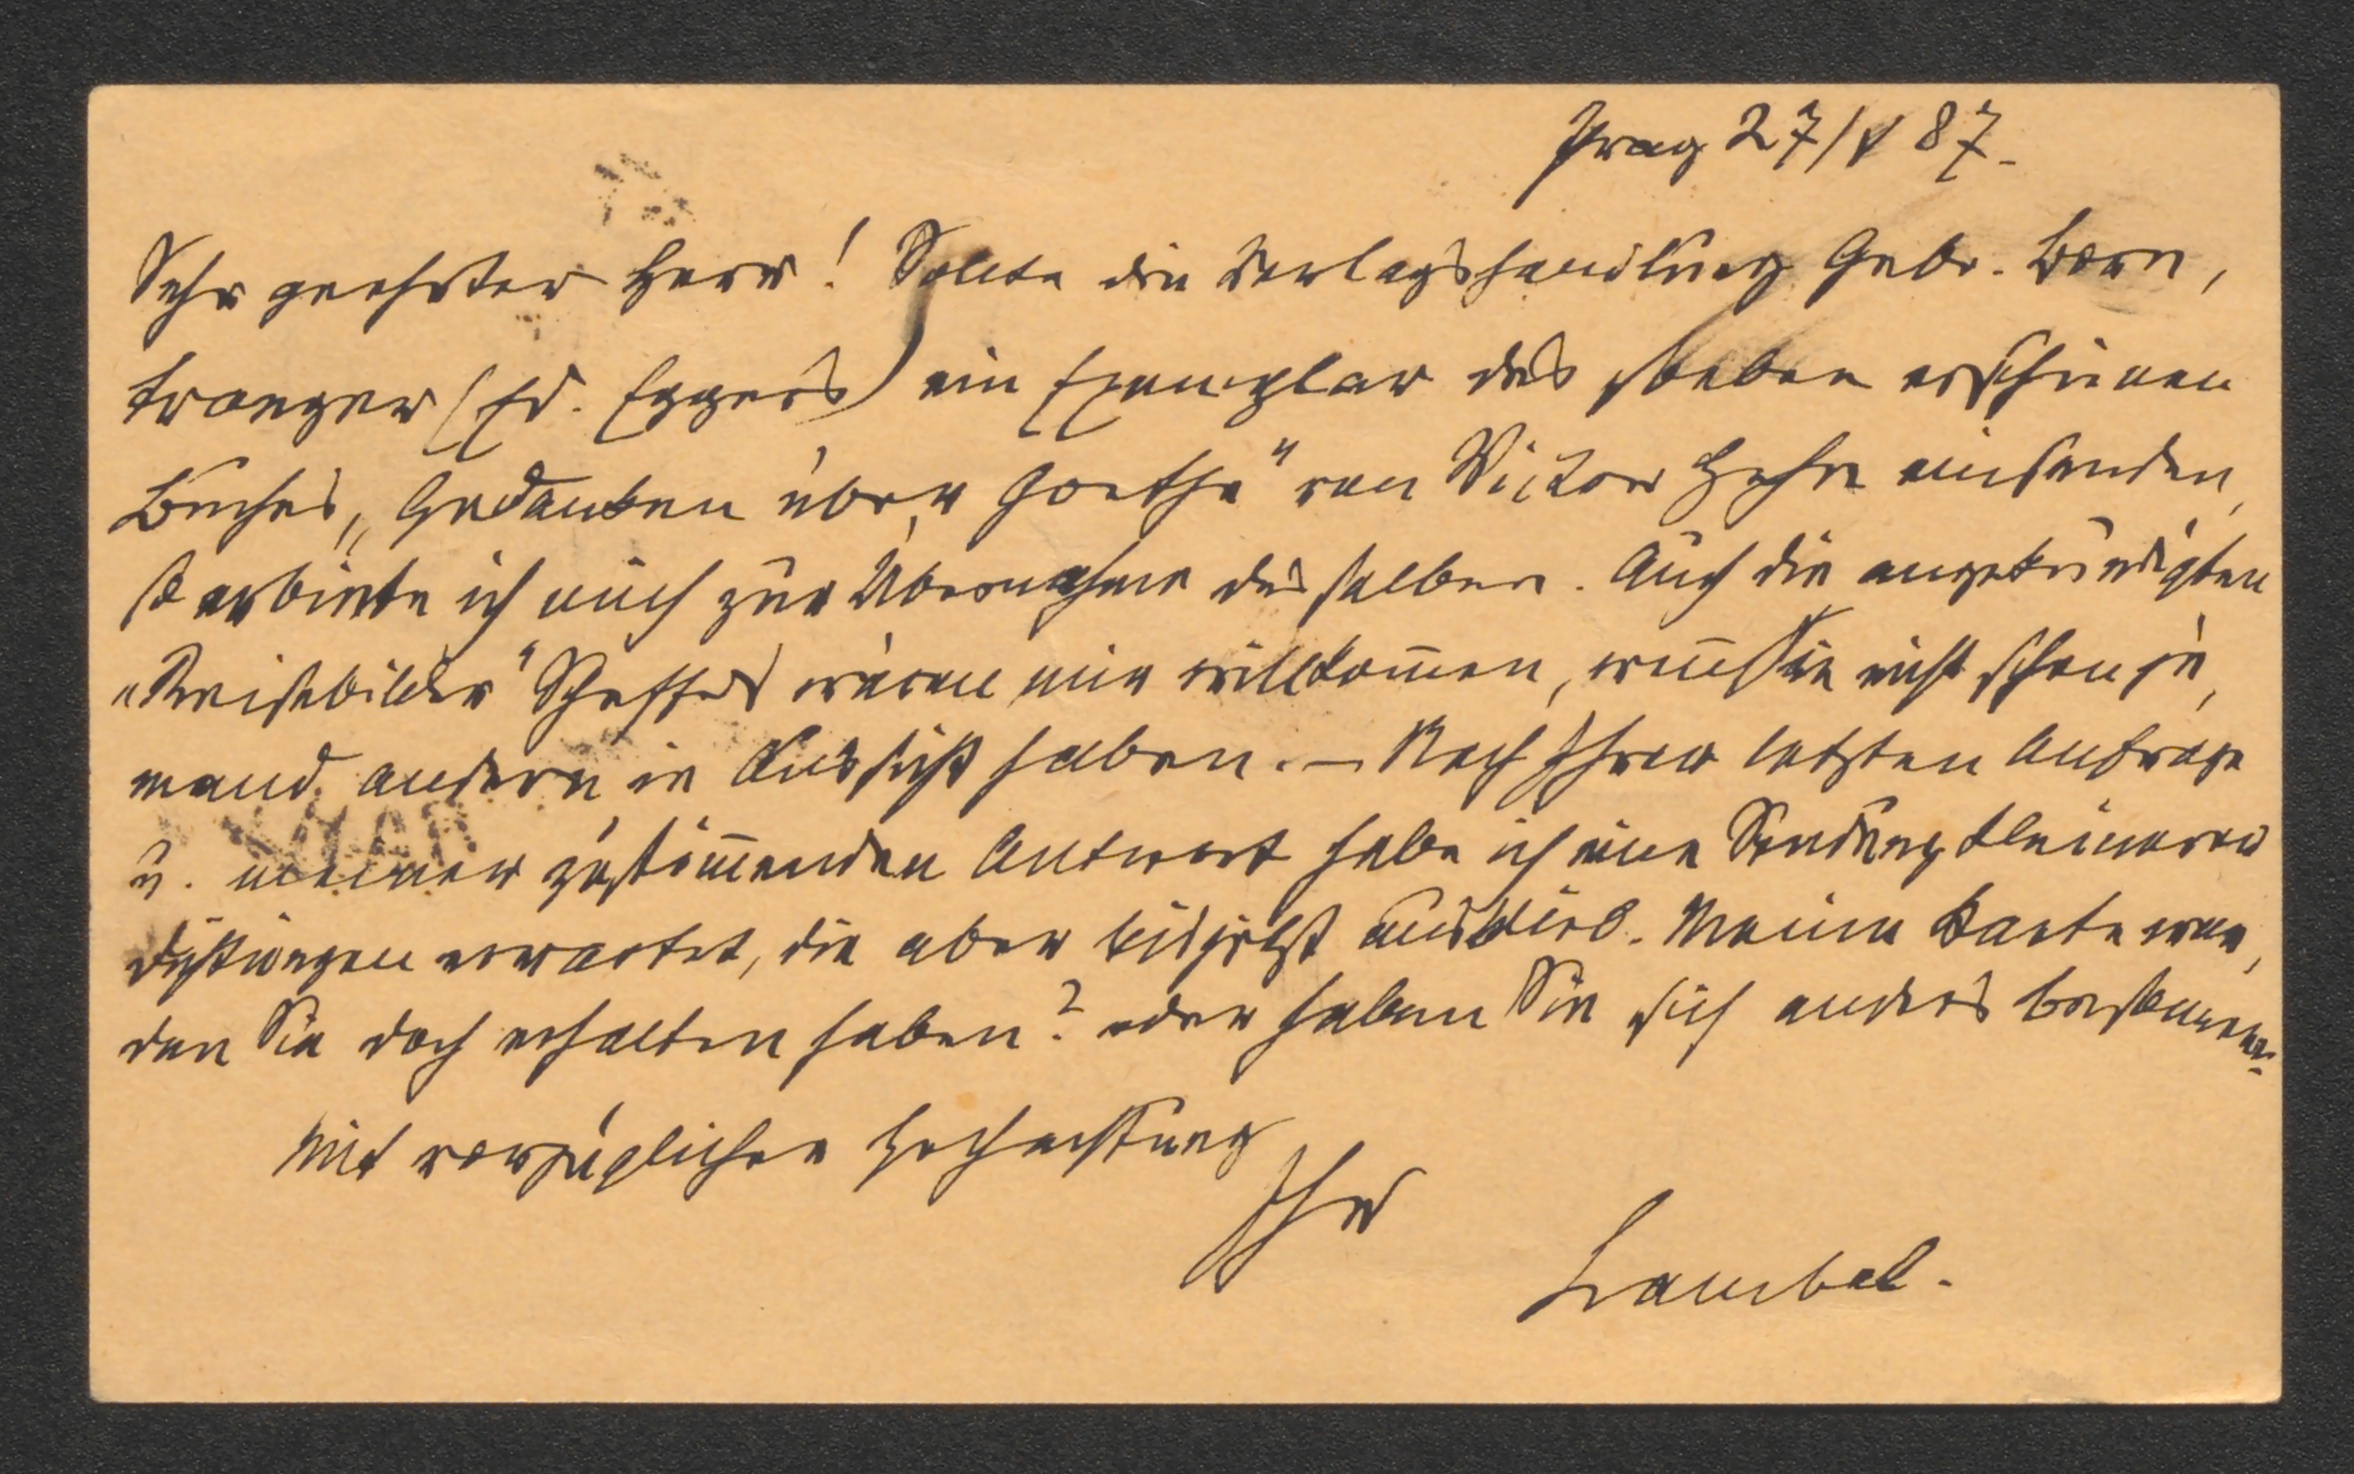 Prag 27/V 87.
Sehr geehrter Herr! Sollte die Verlagshandlung Gebr. Born,
traeger (Ed. Eggers) ein Exemplar des soeben erschienen
Buches „Gedanken über Goethe" von Victor Hehn einsenden,
so erbiete ich mich zur Übernahme desselben. Auch die angekündigten
„Reisebilder" Scheffels wären mir willkom̅en, wen̅ Sie nicht schon je,
mand andern in Aussicht haben. – Nach Ihrer letzten Anfrage
u. meiner zustim̅enden Antwort habe ich eine Sendung kleinerer
Dichtungen erwartet, die aber bis jetzt ausblieb. Meine Karte wer,
den Sie doch erhalten haben? oder haben Sie sich anders besonnen?
Mit vorzüglicher Hochachtung
Ihr
Lambel.